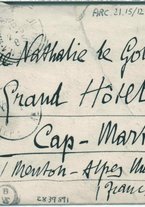 ARC. 21.15/12
e Nathalie de Gol
Grand Hôtel
Cap-Mart
Menton-Alpes M
France